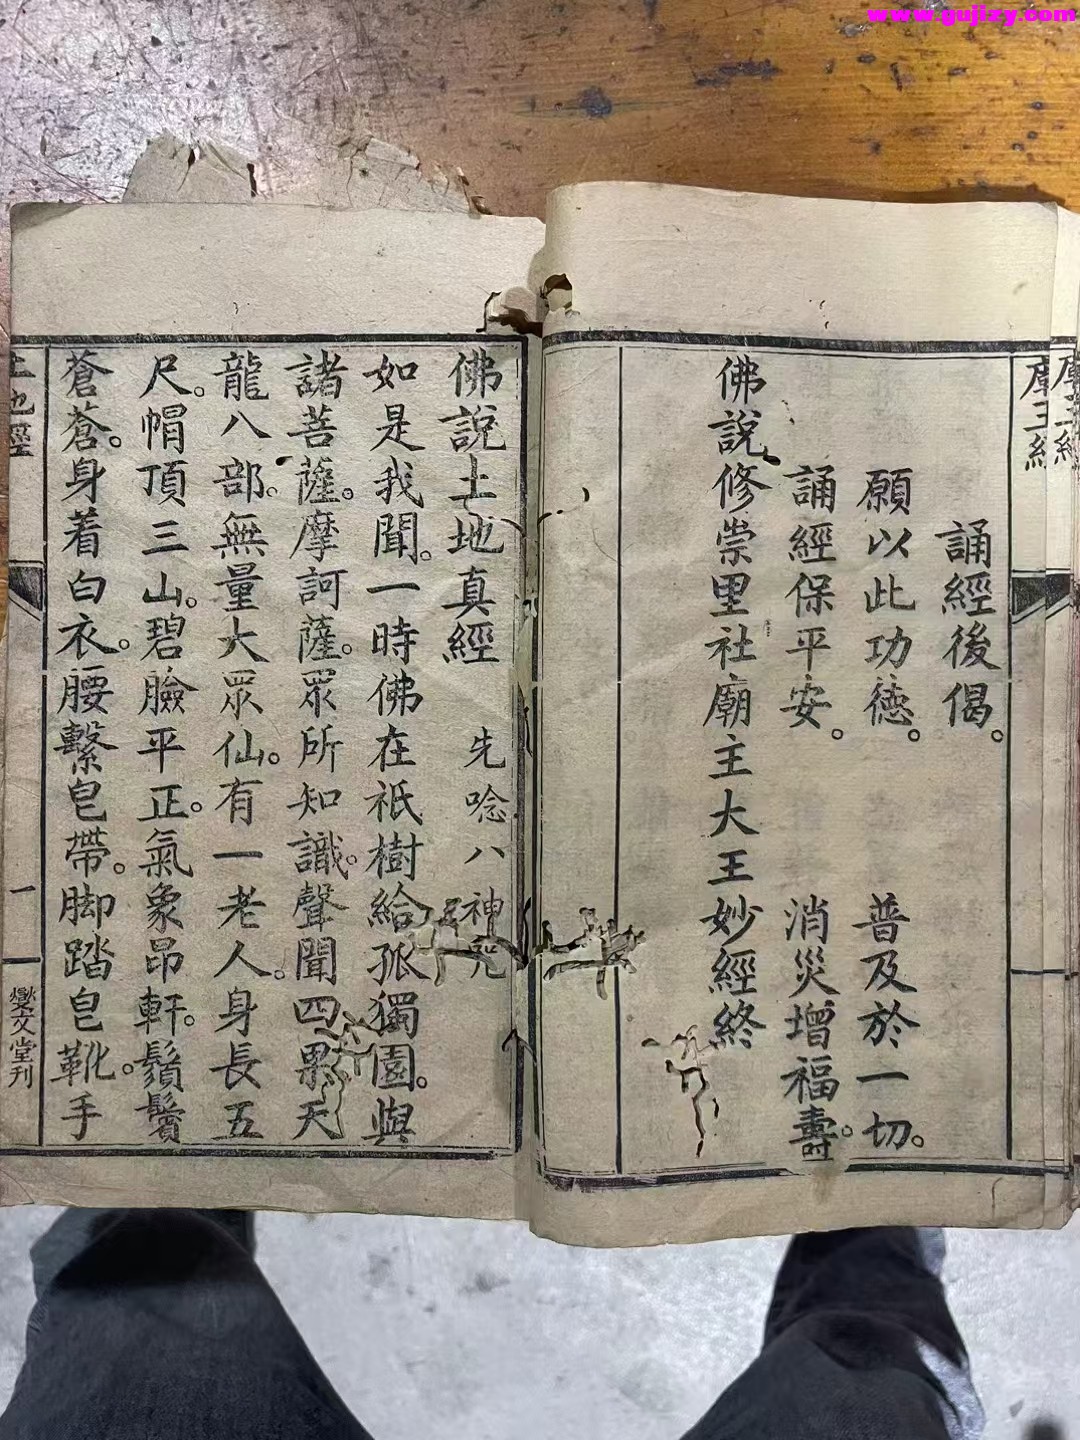 www.gujizy.com
誦經後偈。
願以此功德。 普及於一切。
誦經保平安。 消災增福壽。
佛說修崇里社廟主大王妙經終
佛說土地真經 先唸八神咒
如是我聞。一時佛在祇樹給孤獨園。與
諸菩薩。摩訶薩。眾所知識。聲聞四果天
龍八部。無量大眾仙。有一老人。身長五
尺。帽頂三山。碧臉平正。氣象昂軒。鬚鬢
蒼蒼。身着白衣。腰繫皂帶。脚踏皂靴。手
土地經 一 燮文堂刊